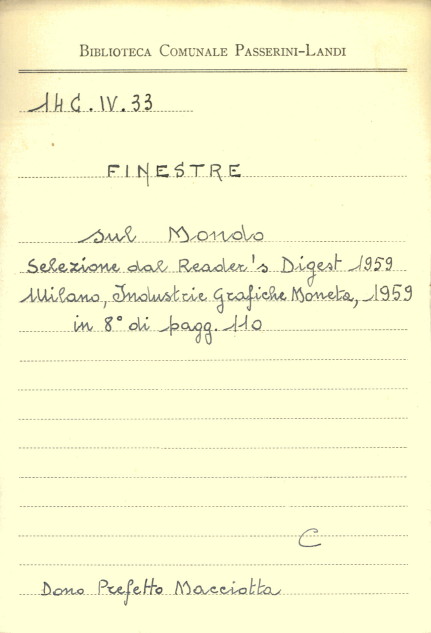 BIBLIOTECA COMUNALE PASSERINI-LANDI
14C.IV.33
FINESTRE
sul Mondo
Selezione dal Reader's Digest 1959
Milano, Industrie Grafiche Moneta, 1959
in 8° di pagg. 110
C
Dono Prefetto Macciotta